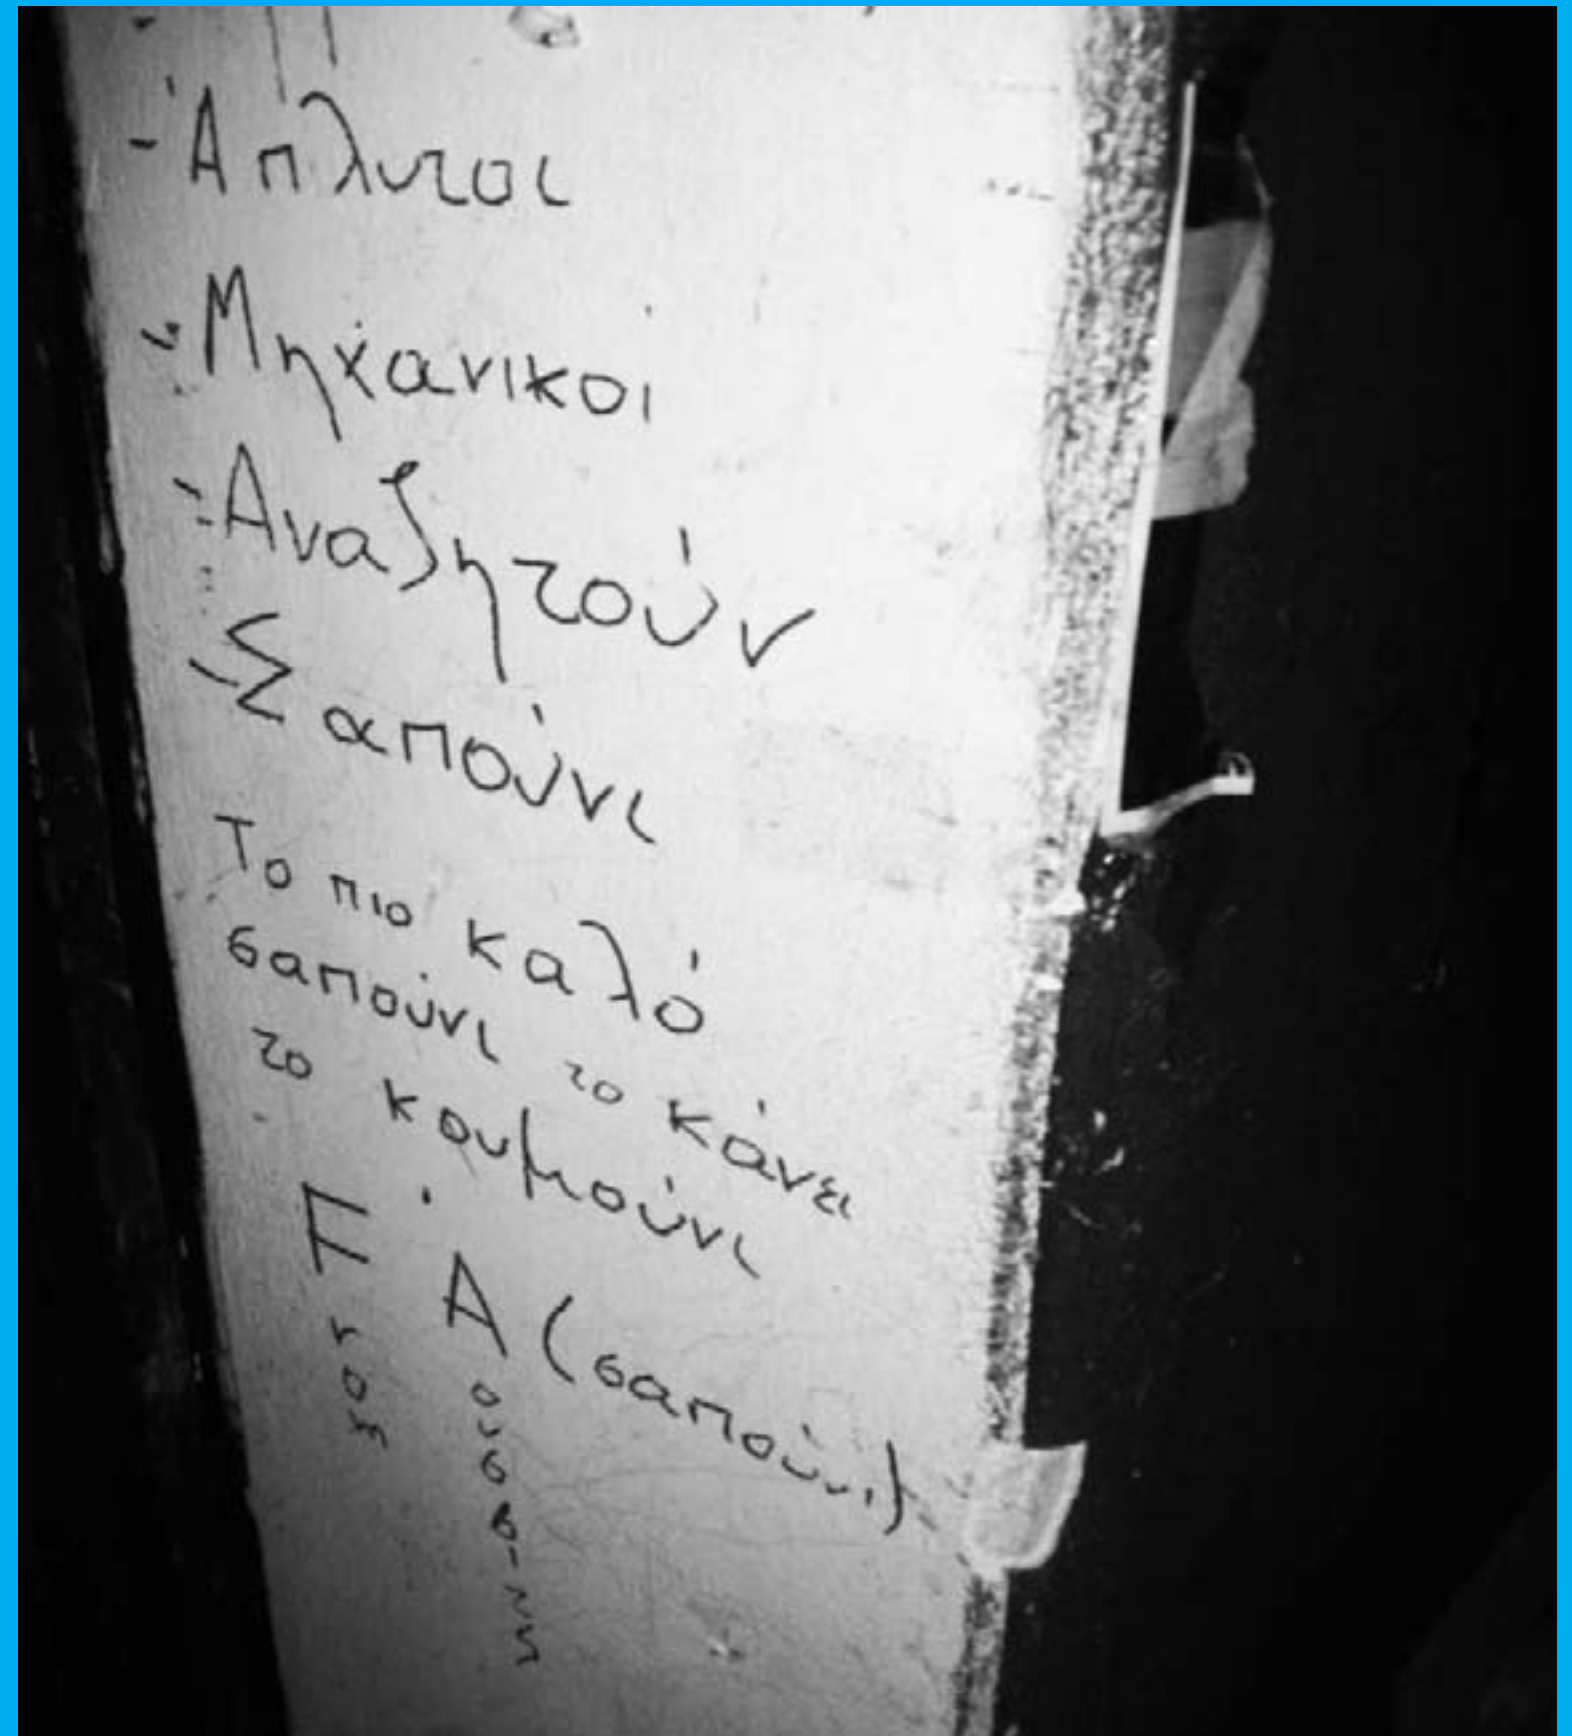 - Άπλυτοι
- Μηχανικοι
- Αναζητούν
- Σαπούνι
Το πιο καλό
σαπούνι το κάνει
το κουμούνι
F. A (σαπούνι)